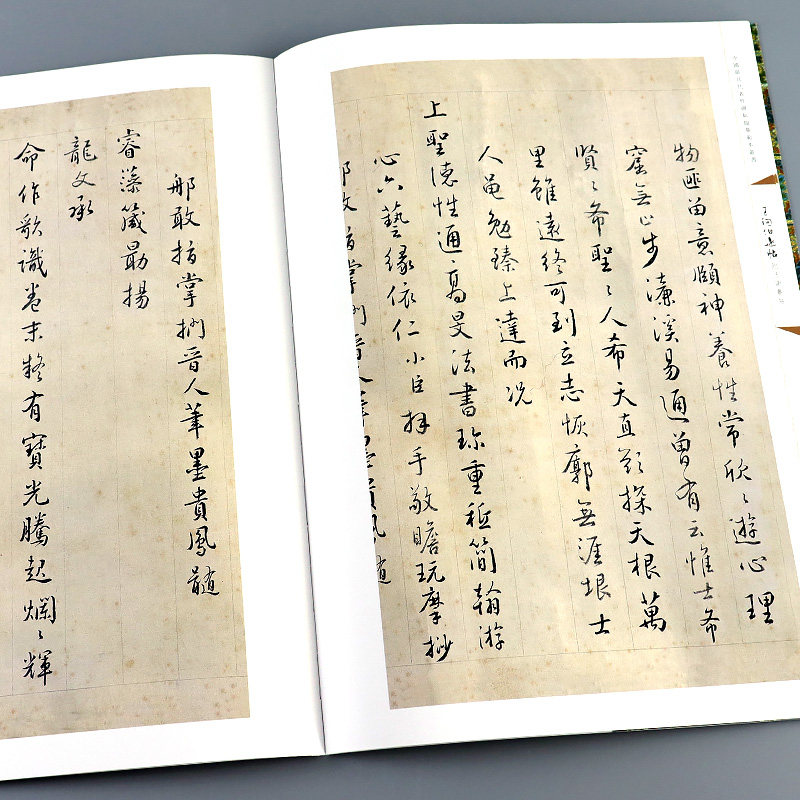 物匪留意頤神養性常欣〻遊心理
窟無止步濂溪易通曾有云惟士希
賢〻希聖〻人希天直欲探天根萬
里雖遠終可到立志恢廓無涯垠士
人黽勉臻上達而況
上聖德性通高旻法書珍重秪簡翰游
心六藝緣依仁小臣拜手敬瞻玩摩挲
那敢指掌捫晉人筆墨貴鳳髓
那敢指掌捫晉人筆墨貴鳳髓
睿藻箴勗揚
龍文承
命作歌識卷末疑有寶光騰起爛〻輝
王珣伯遠帖